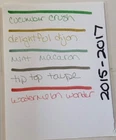 cucumber crush
delightful dijon
mint macaron
tip top taupe
watermelon wonder
2015-2017